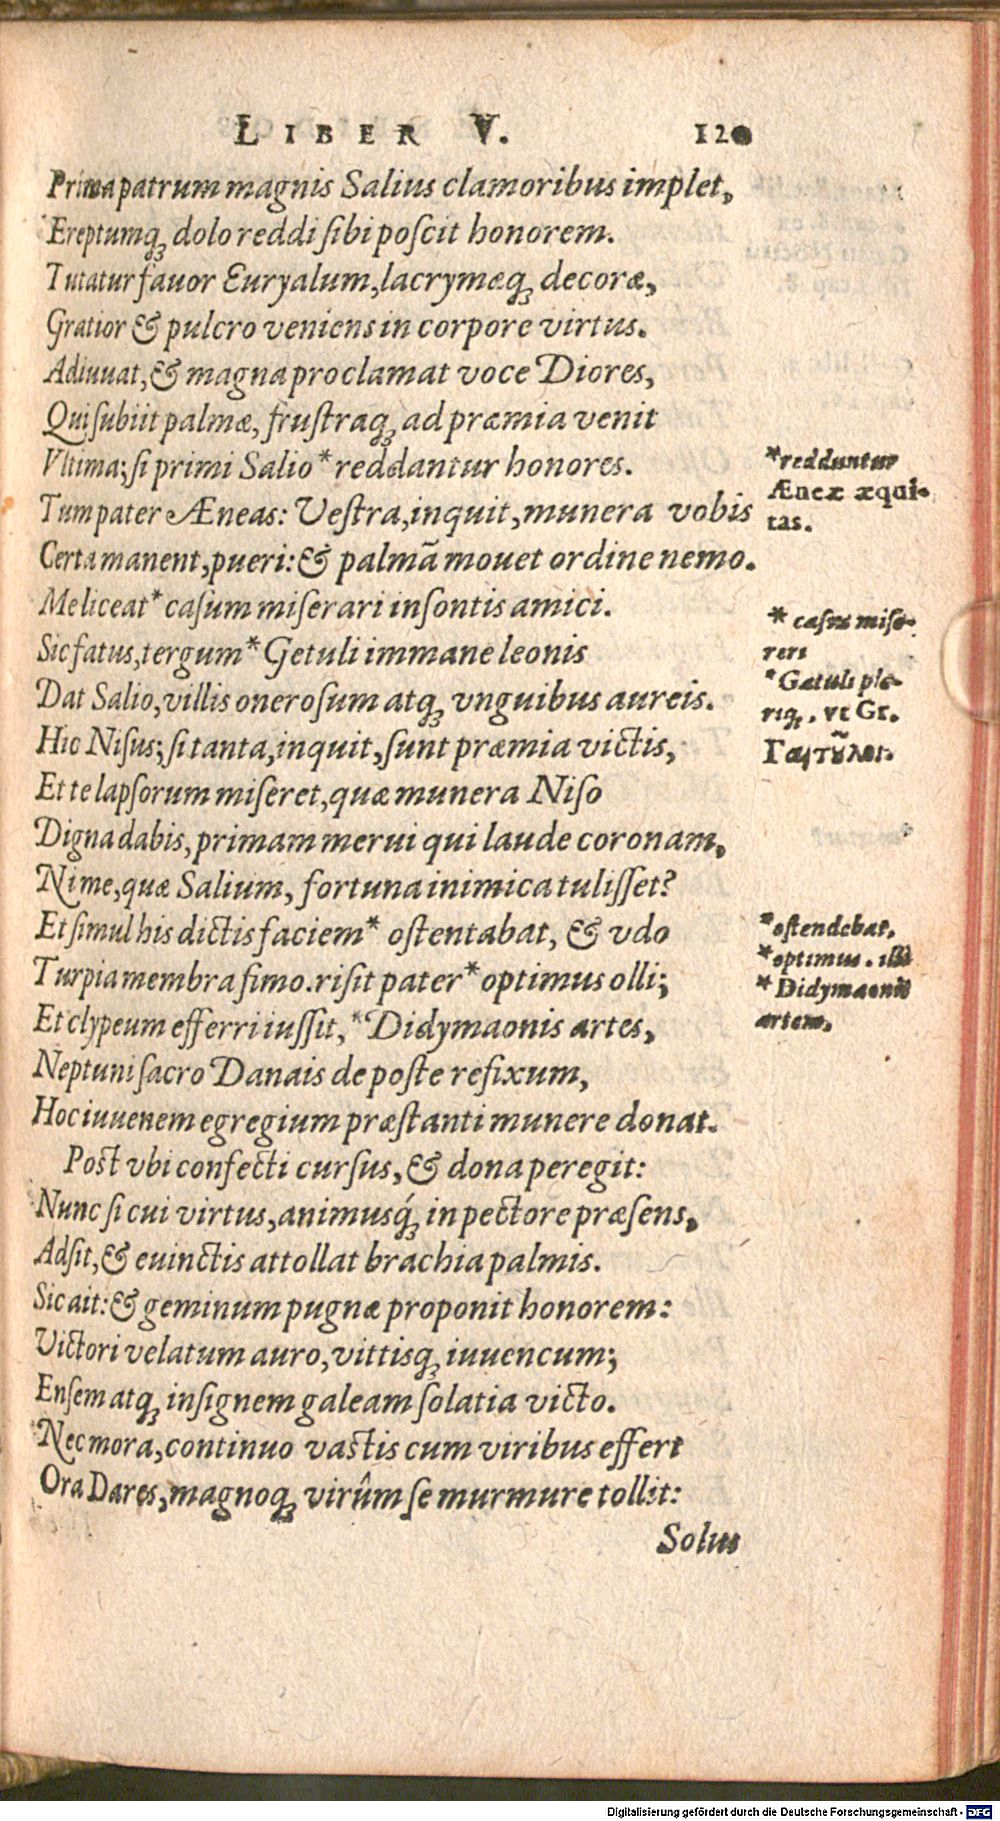 LIBER V. 120
Prima patrum magnis Salius clamoribus implet,
Ereptumq́ꝫ dolo reddi sibi poscit honorem.
Tutatur favor Euryalum, lacrymæqꝫ decoræ,
Gratior & pulcro veniens in corpore virtus.
Adiuuat, & magna proclamat voce Diores,
Qui subiit palmæ, frustraqꝫ ad præmia venit
Vltima; si primi Salio * reddantur honores.
*redduntur
Æneæ æqui-
tas.
Tum pater Æneas: Vestra, inquit, munera vobis
Certa manent, pueri: & palmā mouet ordine nemo.
Me liceat * casum miserari insontis amici.
* casus mise-
reri
Sic fatus, tergum * Getuli immane leonis
*Gætuli ple-
riqꝫ, vt Gr.
Γαιτῦλοι.
Dat Salio, villis onerosum atqꝫ vnguibus aureis.
Hic Nisus; si tanta, inquit, sunt præmia victis,
Et te lapsorum miseret, quæ munera Niso
Digna dabis, primam merui qui laude coronam,
Ni me, quæ Salium, fortuna inimica tulisset?
Et simul his dictis faciem * ostentabat, & vdo
*ostendebat,
Turpia membra simo. risit pater * optimus olli;
*optimus. illi
Et clypeum efferri iussit, * Didymaonis artes,
* Didymaonis
artem,
Neptuni sacro Danais de poste refixum,
Hoc iuuenem egregium præstanti munere donat.
Post vbi confecti cursus, & dona peregit:
Nunc si cui virtus, animusq́ꝫ in pectore præsens,
Adsit, & euinctis attollat brachia palmis.
Sic ait: & geminum pugnæ proponit honorem:
Victori velatum auro, vittisqꝫ iuuencum;
Ensem atqꝫ insignem galeam solatia victo.
Nec mora, continuo vastis cum viribus effert
Ora Dares, magnoqꝫ virûm se murmure tollit:
Solus
Digitalisierung gefördert durch die Deutsche Forschungsgemeinschaft - DFG